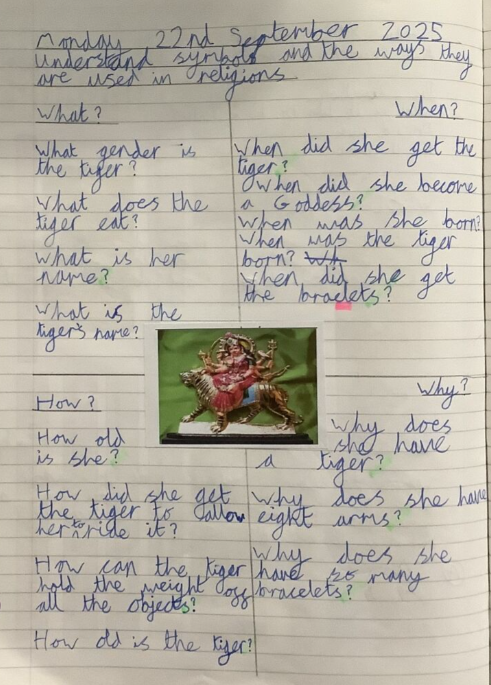 Monday 22nd September 2025
understand symbols and the ways they
are used in religions
What?
What gender is
the tiger?
What does the
tiger eat?
What is her
name?
What is the
tiger's name?
When?
When did she get the
tiger?
When did she become
a Goddess?
When was she born?
When was the tiger
born? Wh
When did she get
the bracelets?
How?
How old
is she?
How did she get
the tiger to allow
her to ride it?
How can the tiger
hold the weight off
all the objects?
How old is the tiger?
Why?
Why does
she have
a tiger?
Why does she have
eight arms?
Why does she
have so many
bracelets?